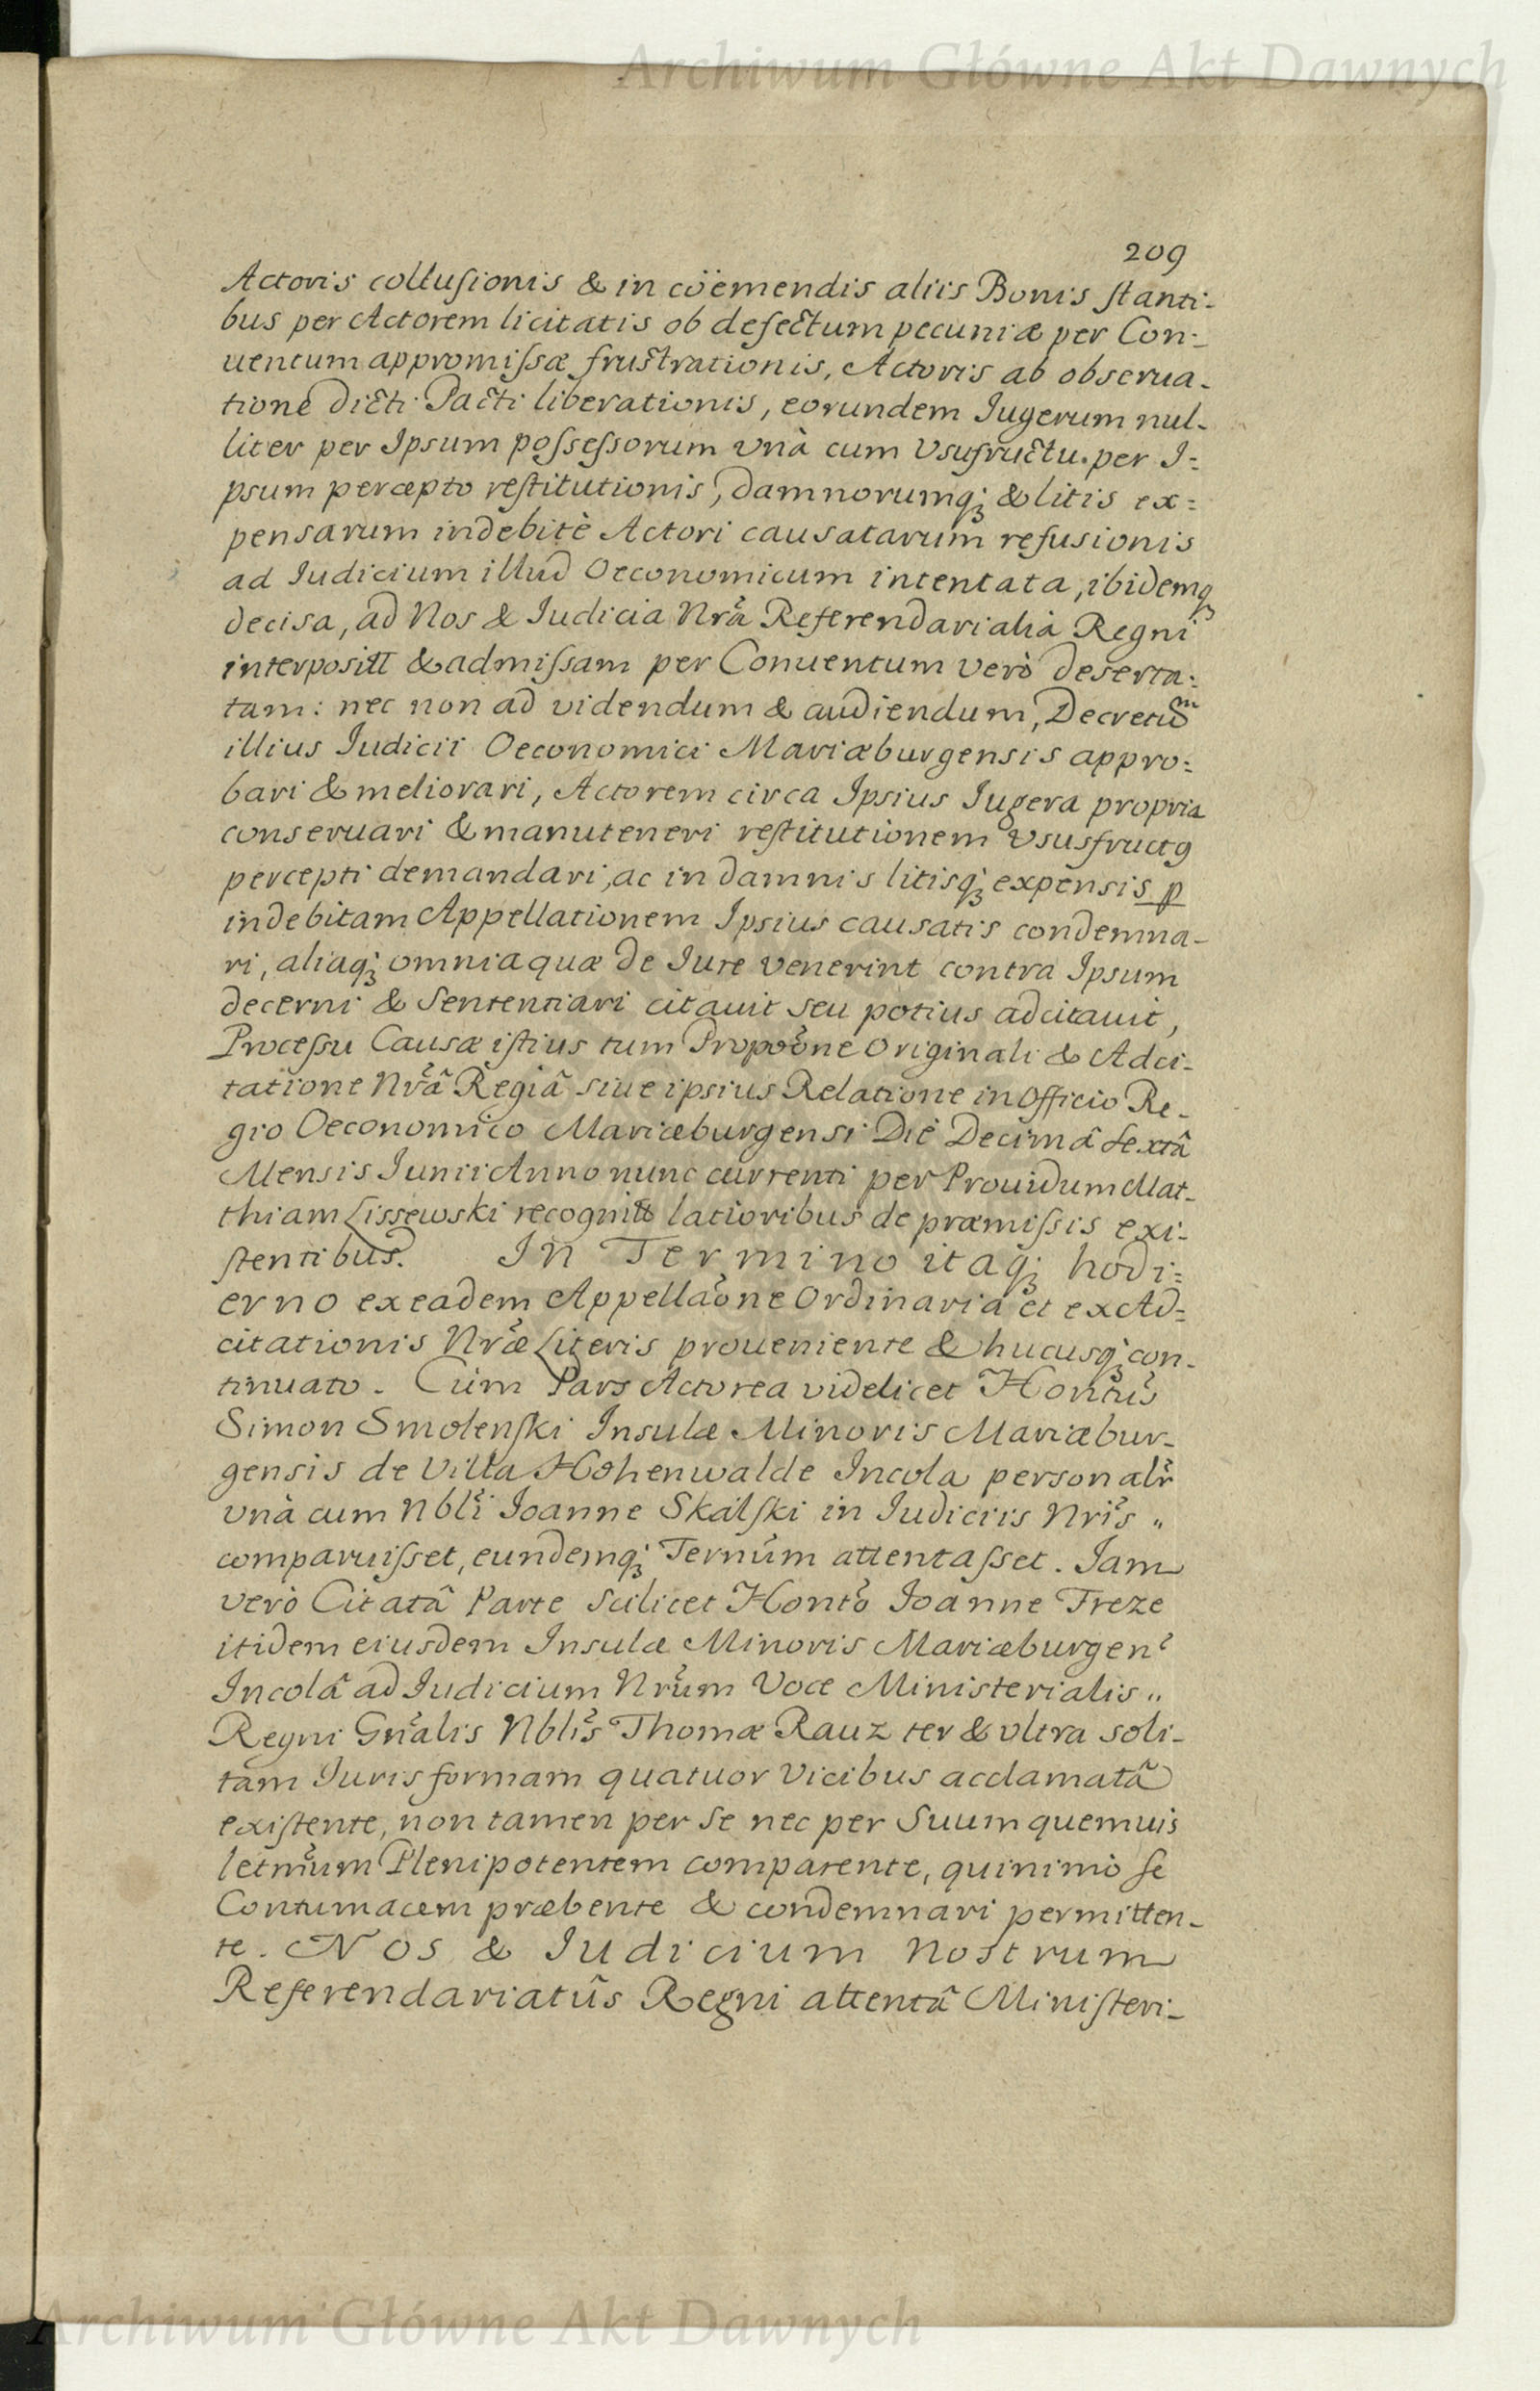 Archiwum Główne Akt Dawnych
209
Actoris collusionis & in cöemendis aliis Bonis stanti-
bus per Actorem licitatis ob defectum pecuniæ per Con-
uentum appromissæ frustrationis, Actoris ab obserua-
tione dicti Pacti liberationis, eorundem Iugerum nul-
liter per Ipsum possessorum vnà cum Vsufructu per I=
psum percæpto restitutionis, damnorumq; & litis ex=
pensarum indebitè Actori causatarum refusionis
ad Iudicium illud Oeconomicum intentata, ibidemq;
decisa, ad Nos & Iudicia Nrã Referendarialia Regni
interposit & admissam per Conuentum verò deserta-
tam: nec non ad videndum & audiendum, Decretum
illius Iudicii Oeconomici Mariæburgensis appro-
bari & meliorari, Actorem circa Ipsius Iugera propria
conseruari & manuteneri restitutionem Vsusfructꝰ
percepti demandari, ac in damnis litisq; expensis ꝑ
indebitam Appellationem Ipsius causatis condemna-
ri, aliaq; omnia quæ de Iure venerint contra Ipsum
decerni & Sententiari citauit seu potius adcitauit,
Processu Causæ istius tum Propoõne Originali & Adci-
tatione Nrã Regiâ siue ipsius Relatione in Officio Re-
gio Oeconomico Mariæburgensi Die Decimâ Sextâ
Mensis Iunii Anno nunc currenti per Prouidum Mat-
thiam Lissewski recognit latioribus de præmissis exi-
stentibus. In Termino itaq; hodi=
erno ex eadem Appellaõne Ordinaria et ex Ad=
citationis Nræ Literis proueniente & hucusq; con-
tinuato. Cùm Pars Actorea videlicet Hontus
Simon Smolenski Insulæ Minoris Mariæbur-
gensis de Villa Hohenwalde Incola personalr
vnà cum Nbli Ioanne Skalski in Iudiciis Nris „
comparuisset, eundemq; Ternum attentasset. Iam
verò Citatâ Parte scilicet Honto Ioanne Treze
itidem eiusdem Insulæ Minoris Mariæburgen
Incolâ ad Iudicium Nrum Voce Ministerialis „
Regni Gnalis Nblis Thomæ Rauz ter & vltra soli-
tam Iuris formam quatuor Vicibus acclamatâ
existente, non tamen per se nec per Suum quemuis
letmum Plenipotentem comparente, quinimò se
Contumacem præbente & condemnari permitten-
te. Nos & Iudicium Nostrum
Referendariatûs Regni attentâ Ministeri-
Archiwum Główne Akt Dawnych